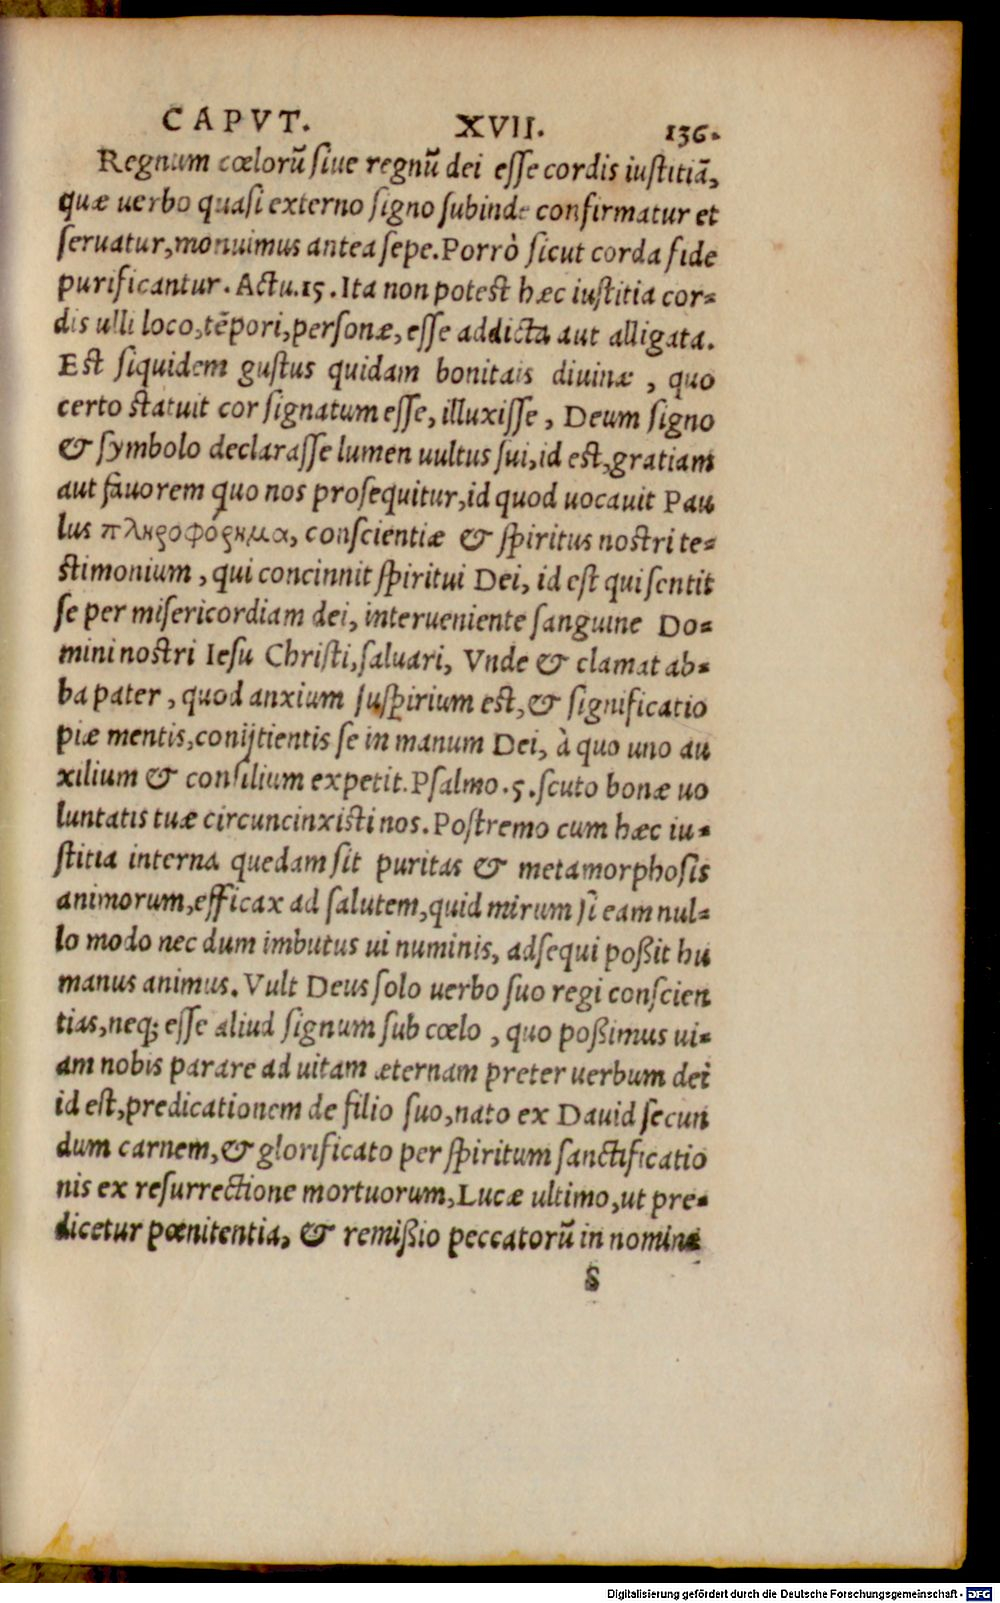 CAPVT. XVII. 136.
Regnum cœlorũ ſiue regnũ dei eſſe cordis iuſtitiã,
quæ uerbo quaſi externo ſigno ſubinde confirmatur et
ſeruatur, monuimus antea ſepe. Porrò ſicut corda fide
purificantur. Actu. 15. Ita non poteſt hæc iuſtitia cor-
dis ulli loco, tẽpori, perſonæ, eſſe addicta aut alligata.
Eſt ſiquidem guſtus quidam bonitais diuinæ, quo
certo ſtatuit cor ſignatum eſſe, illuxiſſe, Deum ſigno
& ſymbolo declaraſſe lumen uultus ſui, id eſt, gratiam
aut fauorem quo nos proſequitur, id quod uocauit Pau
lus πληροφόρημα, conſcientiæ & ſpiritus noſtri te-
ſtimonium, qui concinnit ſpiritui Dei, id eſt qui ſentit
ſe per miſericordiam dei, interueniente ſanguine Do-
mini noſtri Ieſu Chriſti, ſaluari, Vnde & clamat ab-
ba pater, quod anxium ſuſpirium eſt, & ſignificatio
piæ mentis, conijtientis ſe in manum Dei, à quo uno au
xilium & conſilium expetit. Pſalmo. 5. ſcuto bonæ uo
luntatis tuæ circuncinxiſti nos. Poſtremo cum hæc iu-
ſtitia interna quedam ſit puritas & metamorphoſis
animorum, efficax ad ſalutem, quid mirum ſi eam nul-
lo modo nec dum imbutus ui numinis, adſequi poßit hu
manus animus. Vult Deus ſolo uerbo ſuo regi conſcien
tias, neq; eſſe aliud ſignum ſub cœlo, quo poßimus ui-
am nobis parare ad uitam æternam preter uerbum dei
id eſt, predicationem de filio ſuo, nato ex Dauid ſecun
dum carnem, & glorificato per ſpiritum ſanctificatio
nis ex reſurrectione mortuorum, Lucæ ultimo, ut pre-
dicetur pœnitentia, & remißio peccatorũ in nomine
S
Digitalisierung gefördert durch die Deutsche Forschungsgemeinschaft - DFG